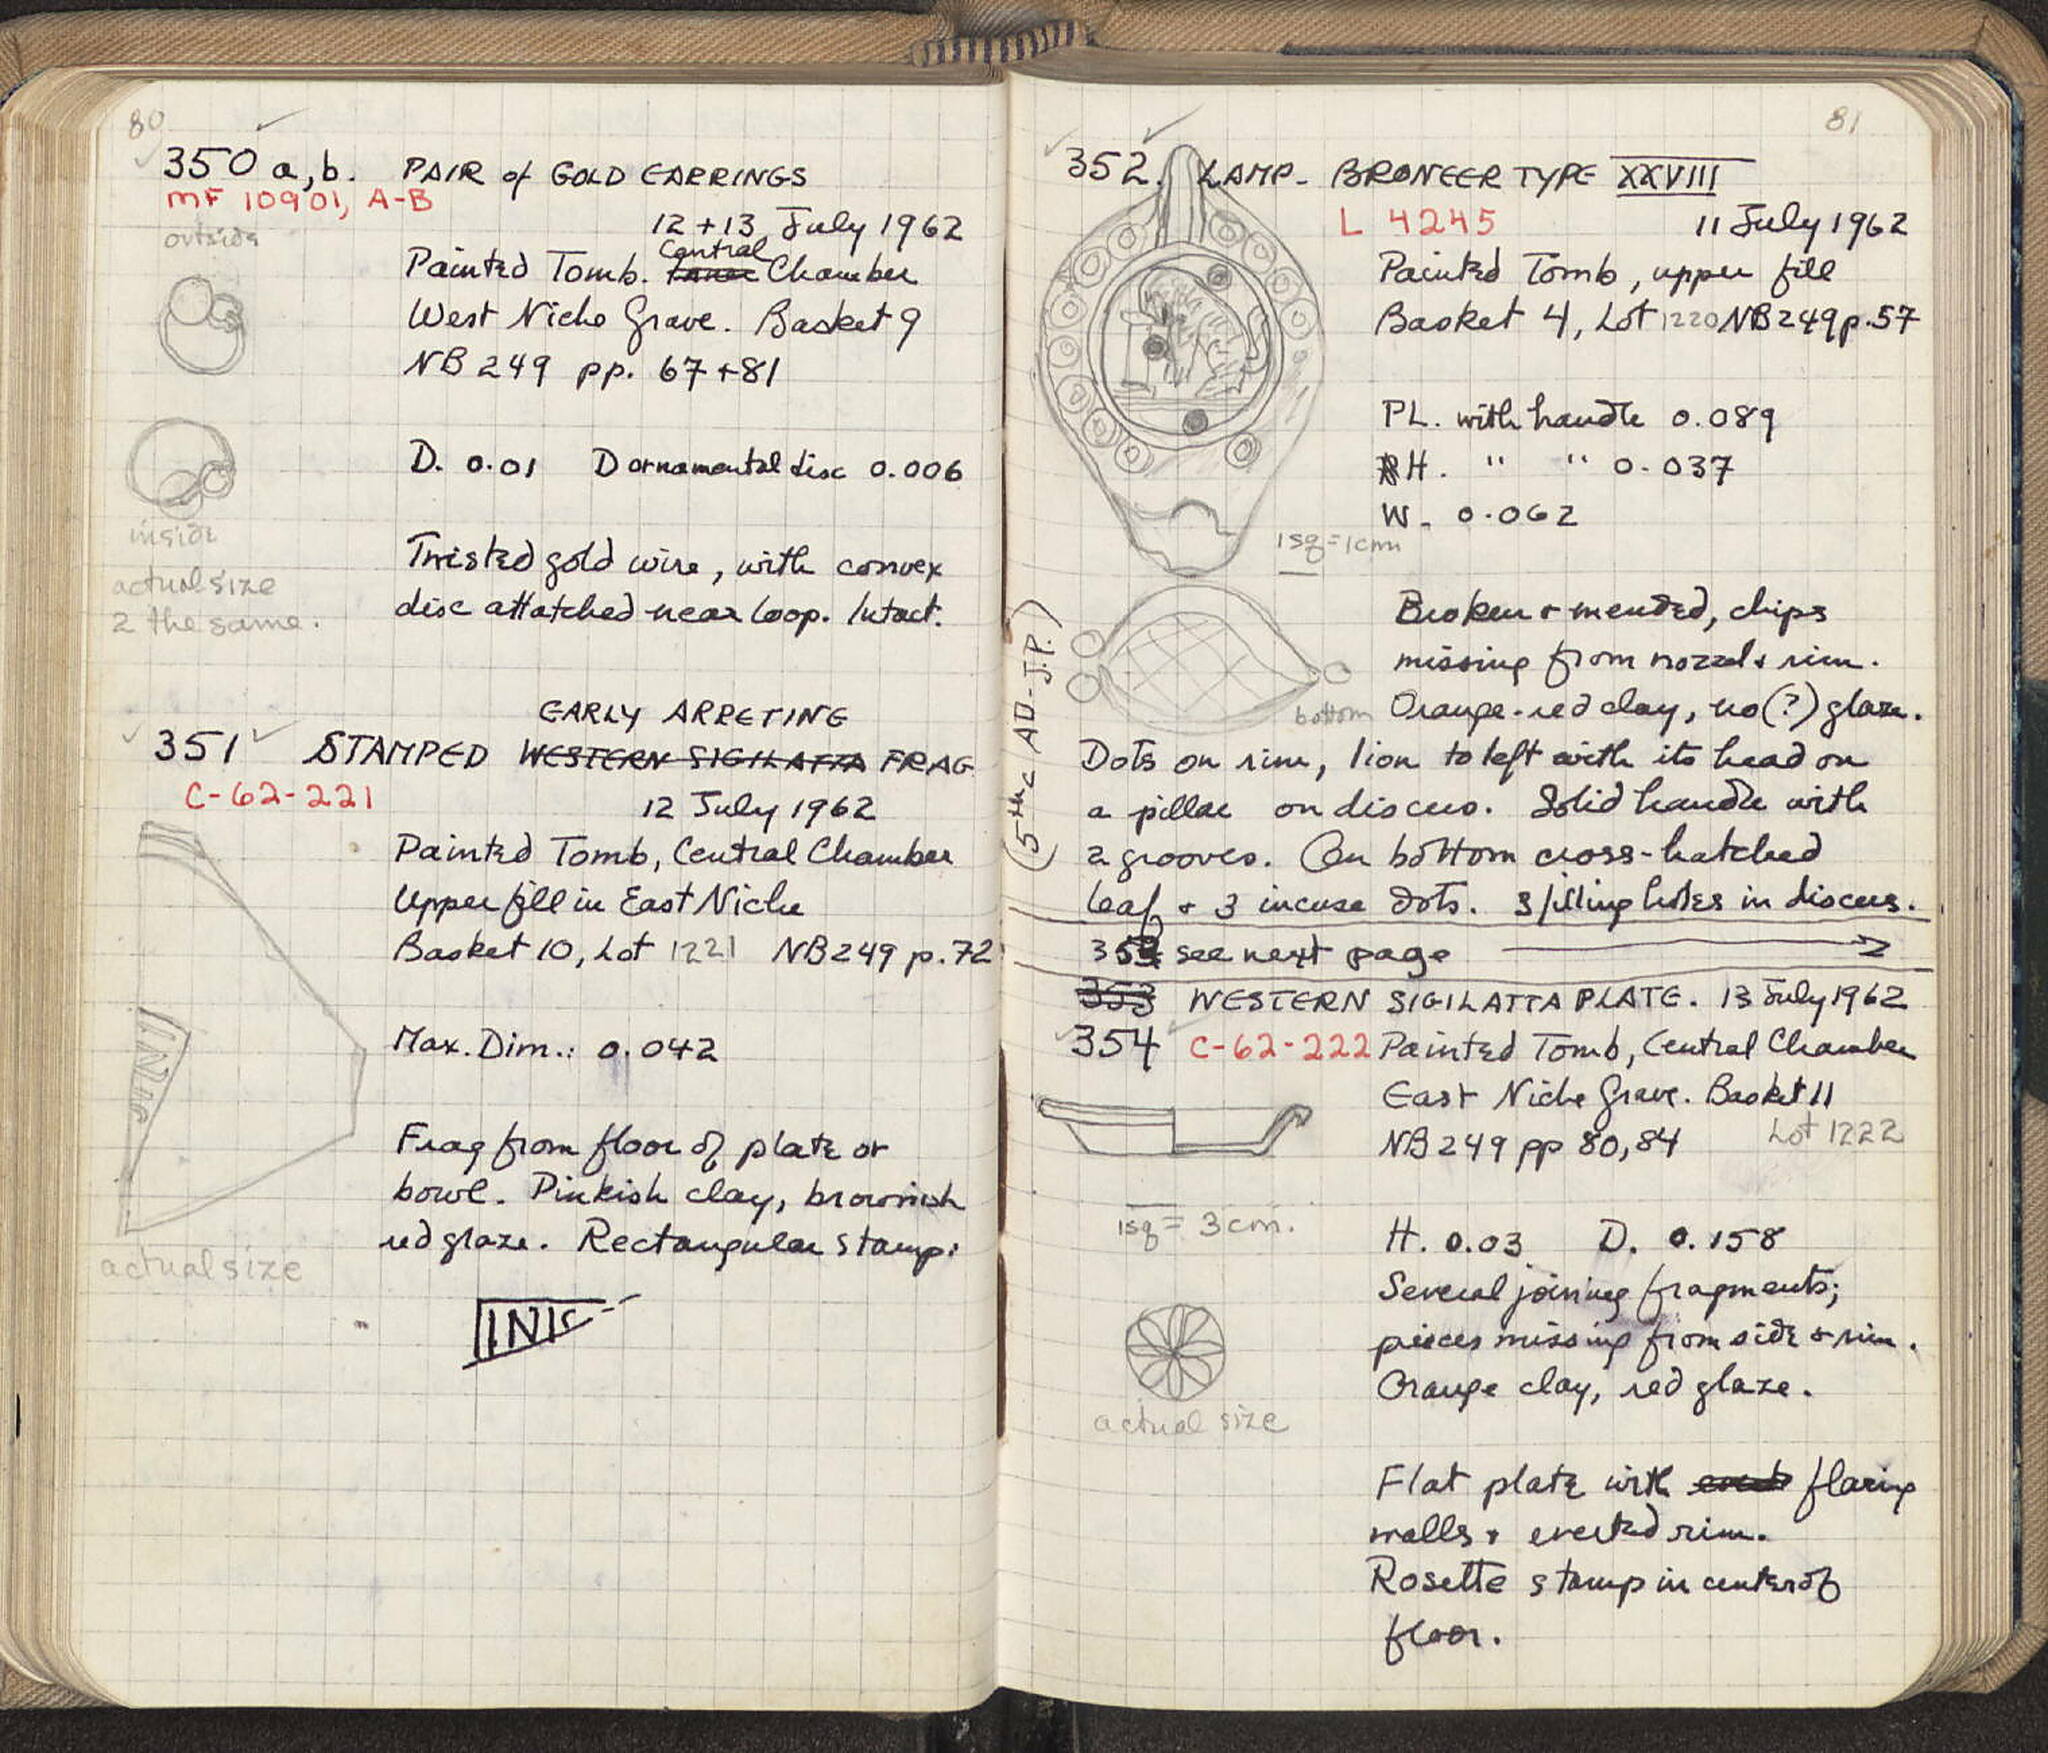 80
350 a, b. PAIR of GOLD EARRINGS
MF 10901, A-B
12 + 13 July 1962
outside
Central
Painted Tomb. Chamber
West Niche Grave. Basket 9
NB 249 pp. 67 + 81
D. 0.01 D ornamental disc 0.006
inside
actual size
2 the same.
Twisted gold wire, with convex
disc attatched near loop. Intact.
EARLY ARRETINE
351 STAMPED WESTERN SIGILATTA FRAG
C-62-221
12 July 1962
Painted Tomb, Central Chamber
Upper fill in East Niche
Basket 10, Lot 1221 NB 249 p. 72
Max. Dim.: 0.042
Frag from floor of plate or
bowl. Pinkish clay, brownish
red glaze. Rectangular stamp:
actual size
INIC
81
352. LAMP - BRONEER TYPE XXVIII
L 4245 11 July 1962
Painted Tomb, upper fill
Basket 4, Lot 1220 NB 249 p. 57
PL. with handle 0.089
H. " " 0.037
W. 0.062
1 sq = 1 cm
Broken + mended, chips
missing from nozzel + rim.
bottom Orange-red clay, no (?) glaze.
(5th c AD - J.P.)
Dots on rim, lion to left with its head on
a pillar on discus. Solid handle with
2 grooves. On bottom cross-hatched
leaf + 3 incuse dots. 3 filling holes in discus.
353 see next page →
353 WESTERN SIGILATTA PLATE. 13 July 1962
354 C-62-222 Painted Tomb, Central Chamber
East Niche Grave. Basket 11
NB 249 pp 80, 84 Lot 1222
1 sq = 3 cm.
H. 0.03 D. 0.158
Several joining fragments;
pieces missing from side + rim.
Orange clay, red glaze.
actual size
Flat plate with flaring
walls + everted rim.
Rosette stamp in center of
floor.